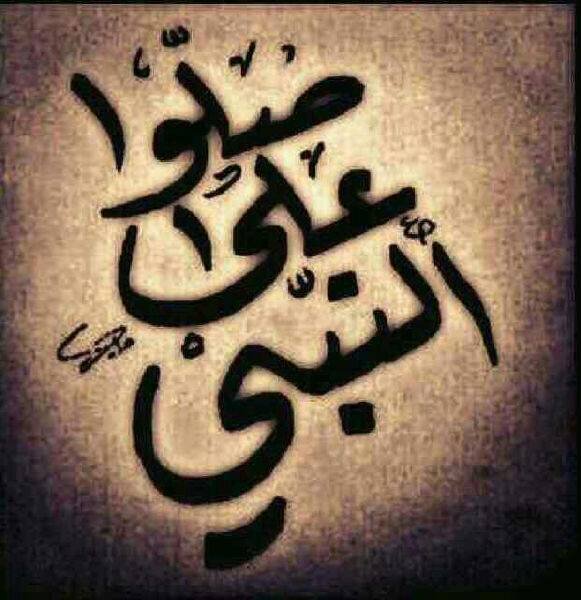 صلّوا
على
ألنبّي